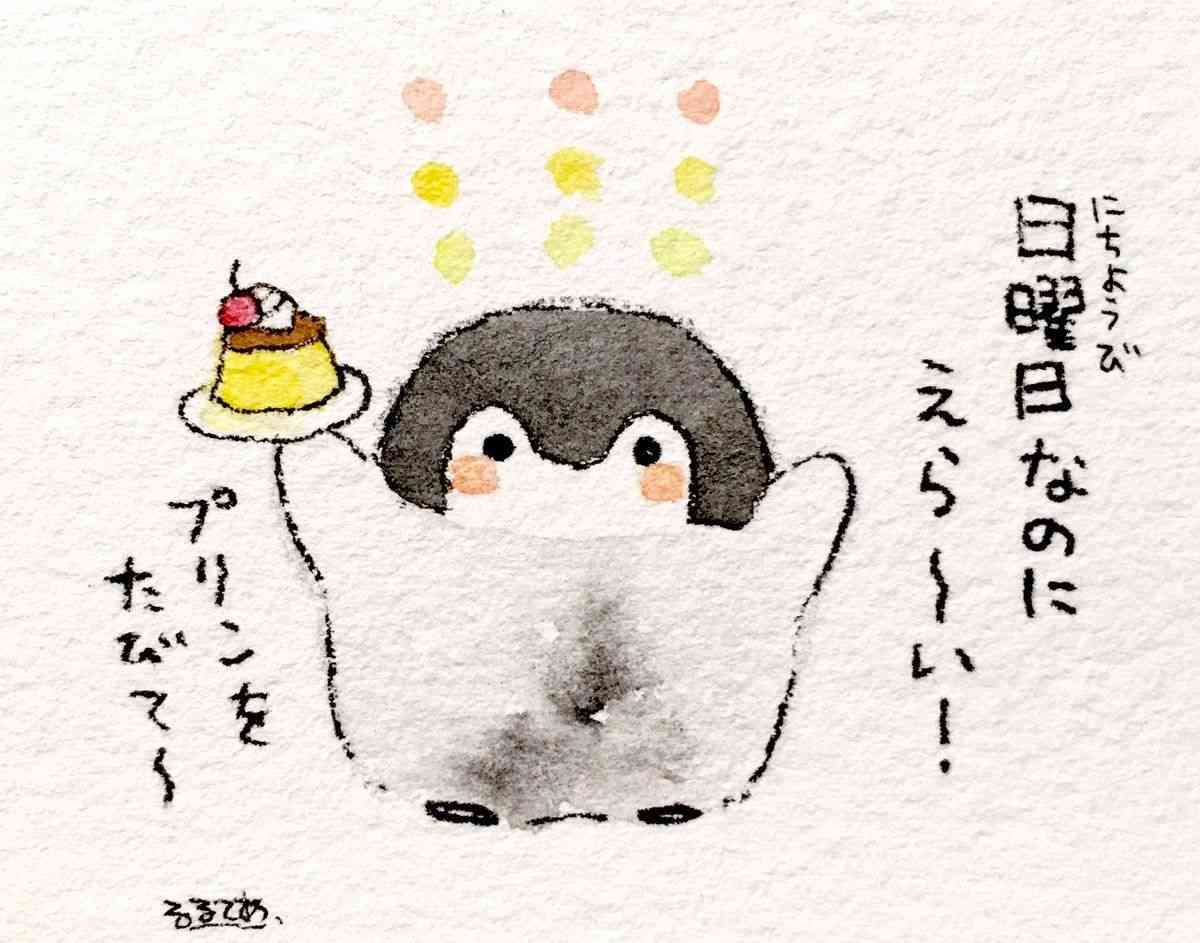 にちようび
日曜日なのに
えら〜い!
プリンを
たびて〜
るるてあ、